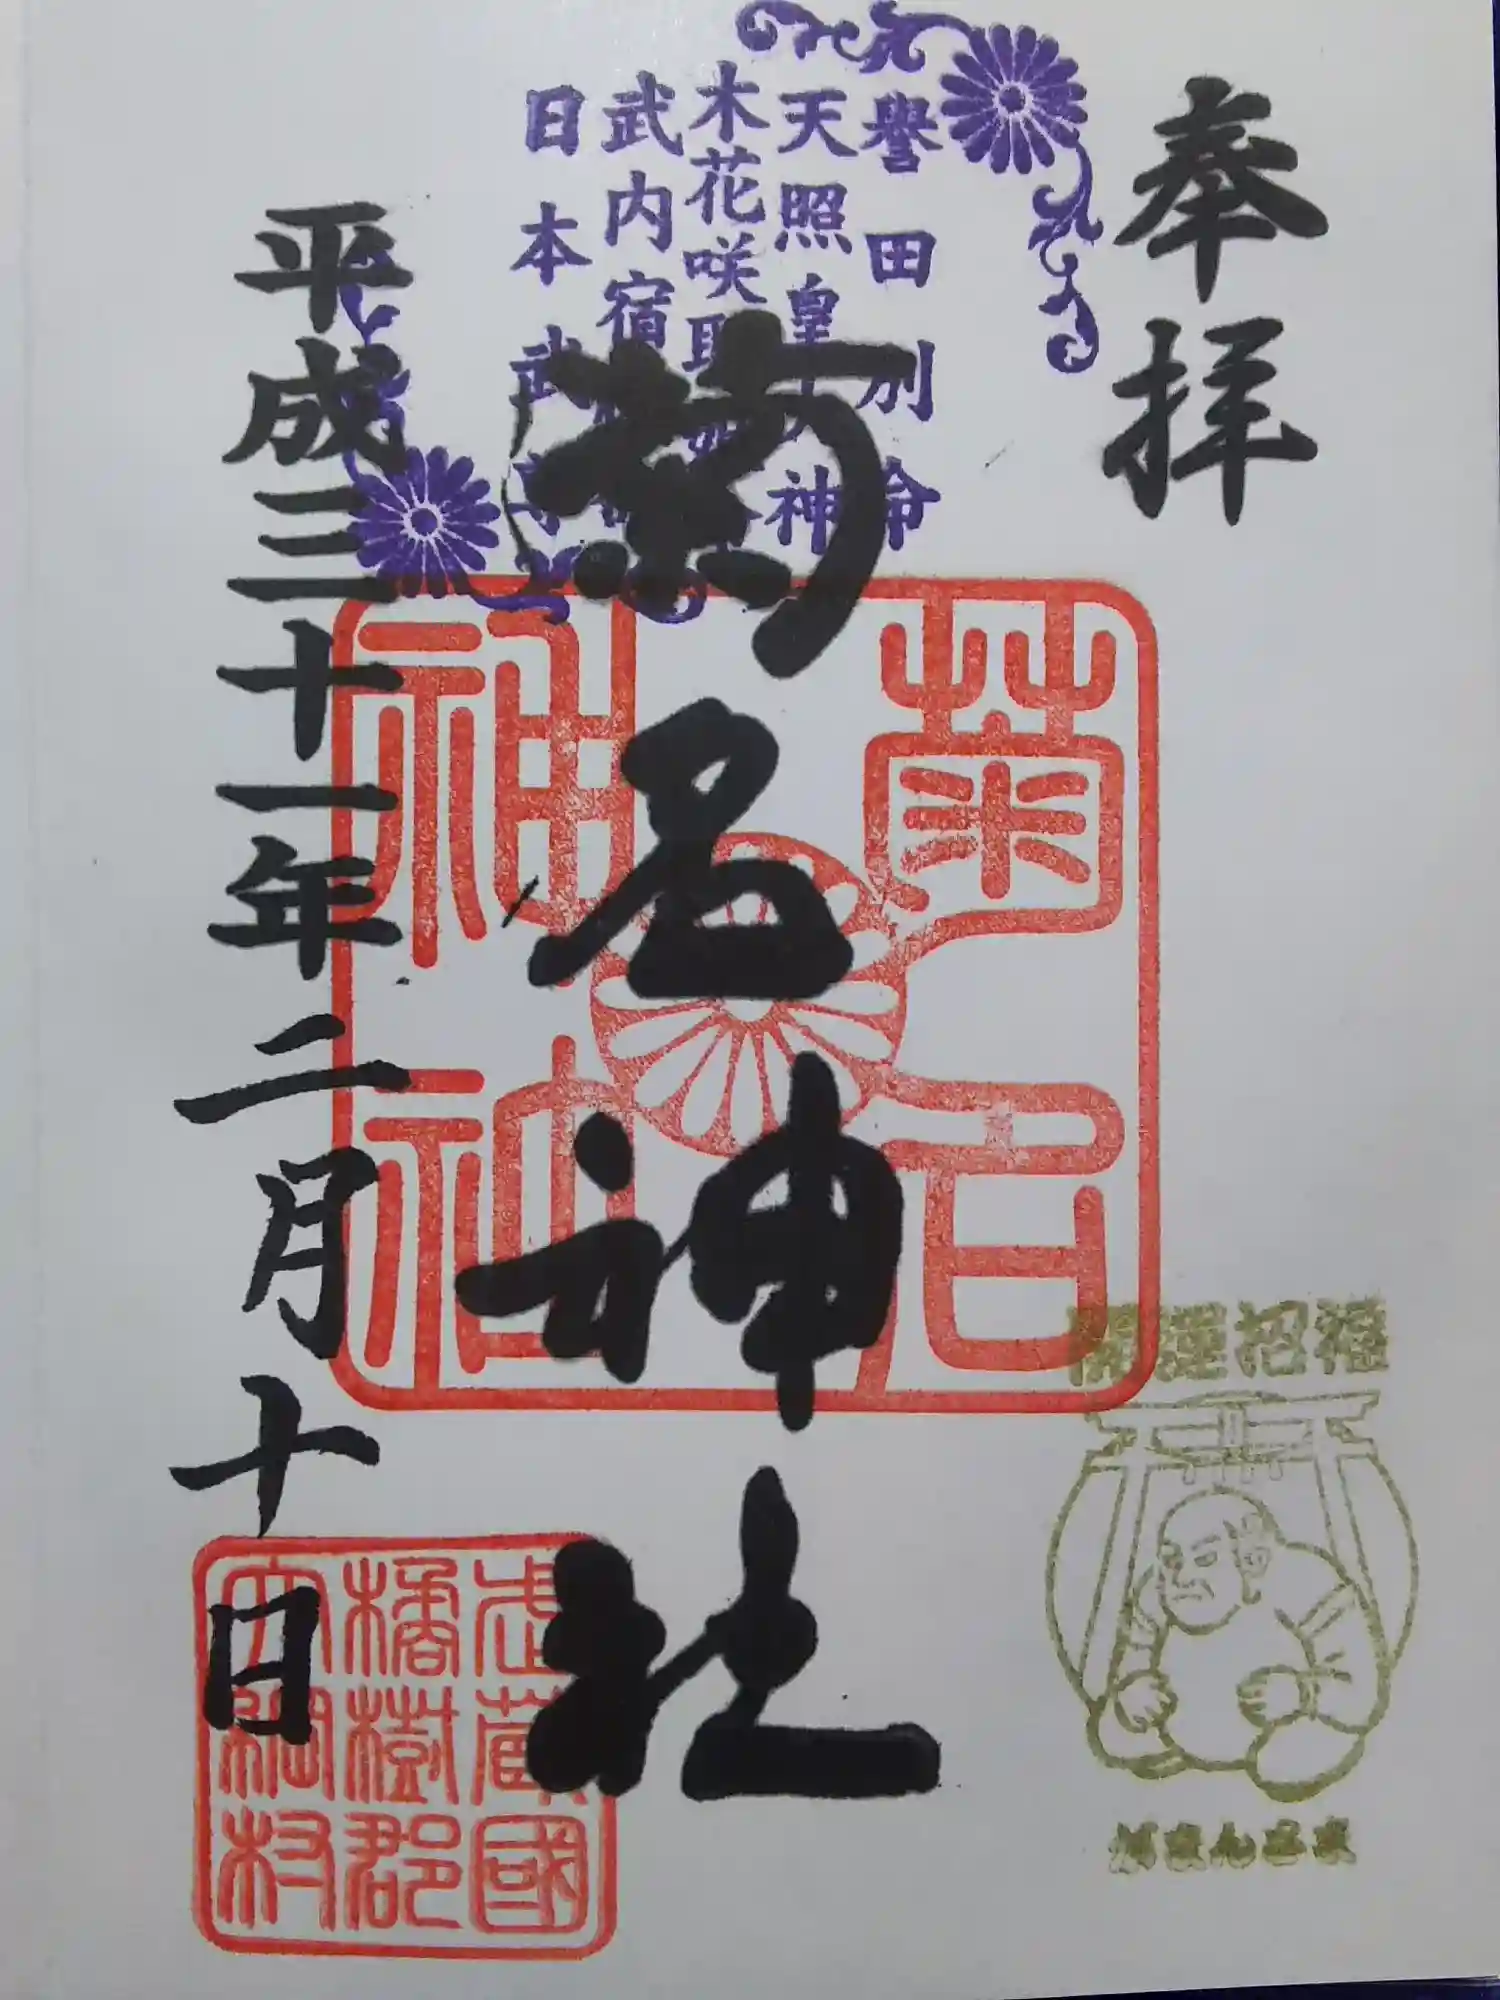 奉拝
譽田別命
天照皇大神
木花咲耶姫命
武内宿禰命
日本武尊
菊名神社
菊名
神社
平成三十一年二月十日
開運招福
がまんさま
武蔵國
橘樹郡
大綱村